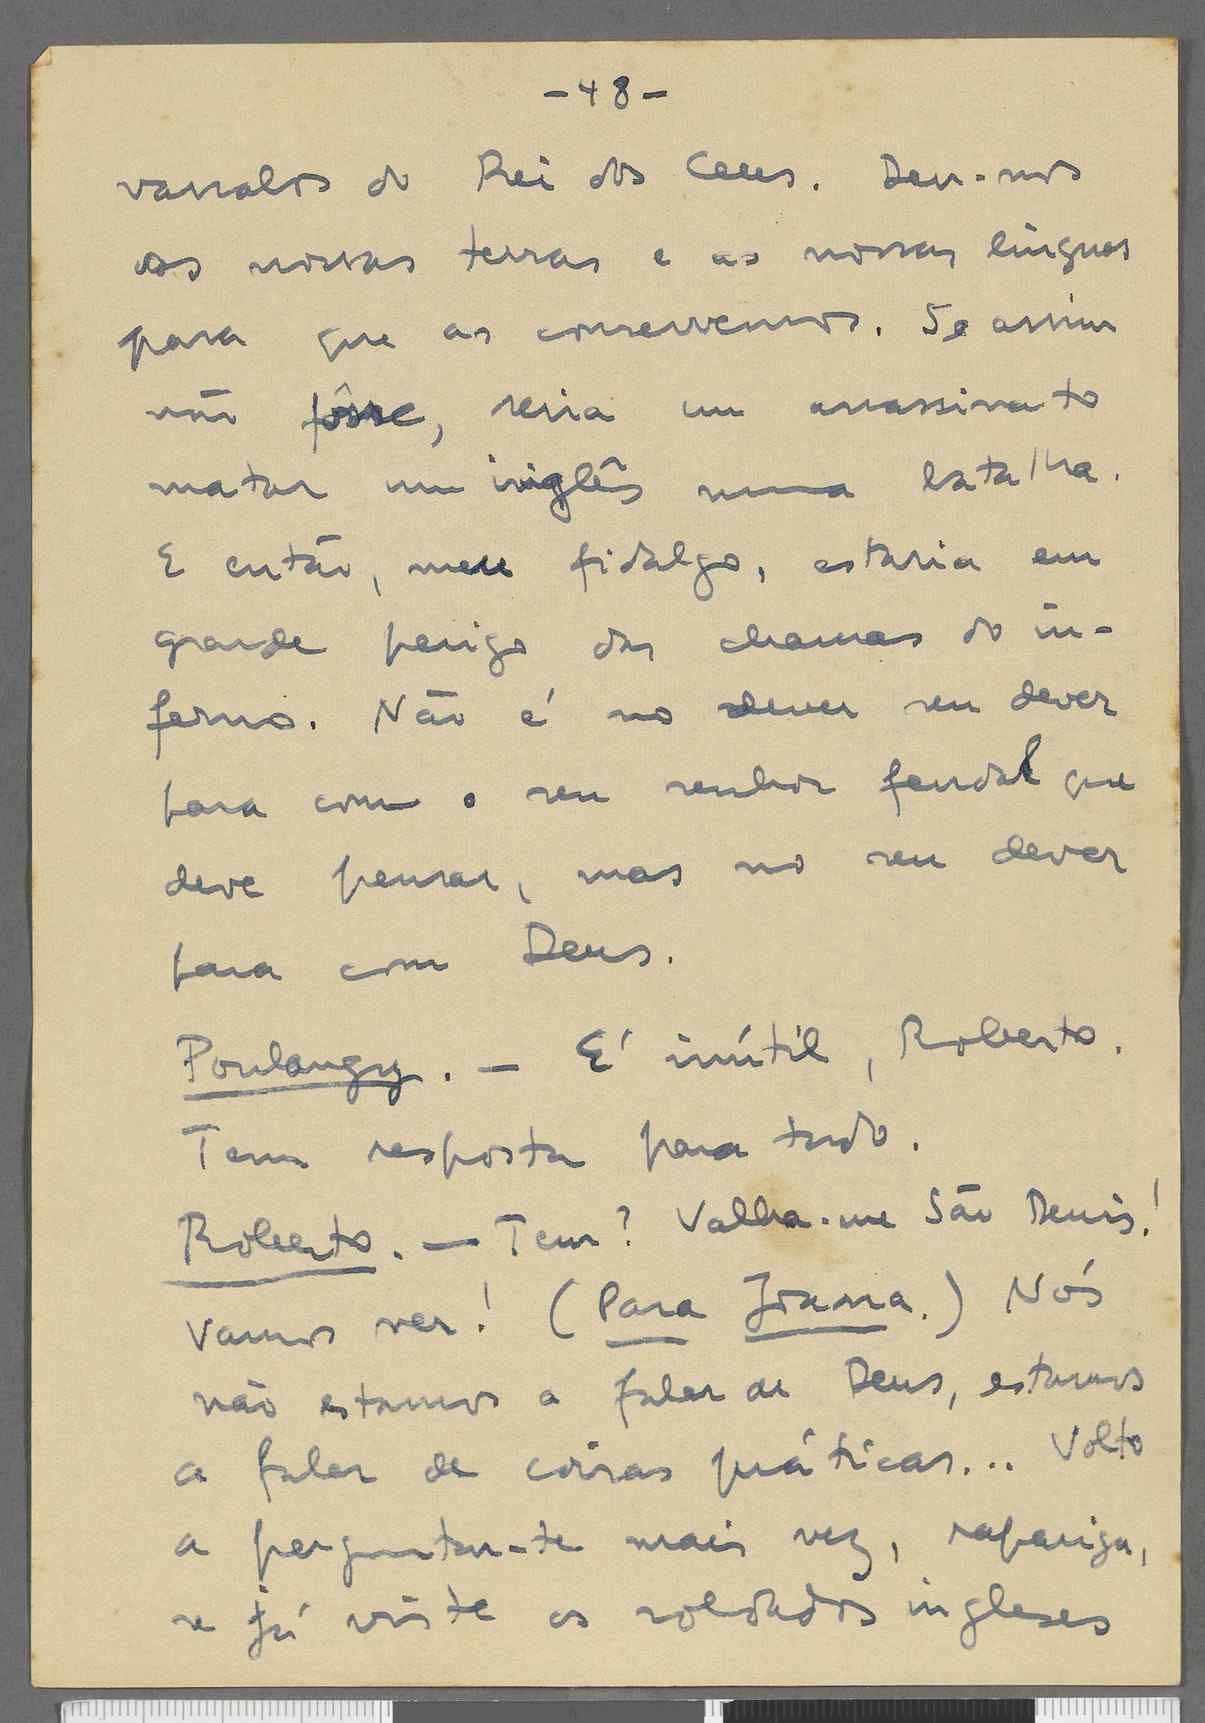 -48-
vassalos do Rei dos Ceus. Deu-nos
as nossas terras e as nossas línguas
para que as conservemos. Se assim
não fôsse, seria um assassinato
matar um inglês numa batalha.
E então, meu fidalgo, estaria em
grande perigo das chamas do in-
ferno. Não é no dever seu dever
para com o seu senhor feudal que
deve pensar, mas no seu dever
para com Deus.
Poulangy. — É inútil, Roberto.
Tem resposta para tudo.
Roberto. — Tem? Valha-me São Denis!
Vamos ver! (Para Joana.) Nós
não estamos a falar de Deus, estamos
a falar de coisas práticas... Volto
a perguntar-te mais vez, rapariga,
se já viste os soldados ingleses